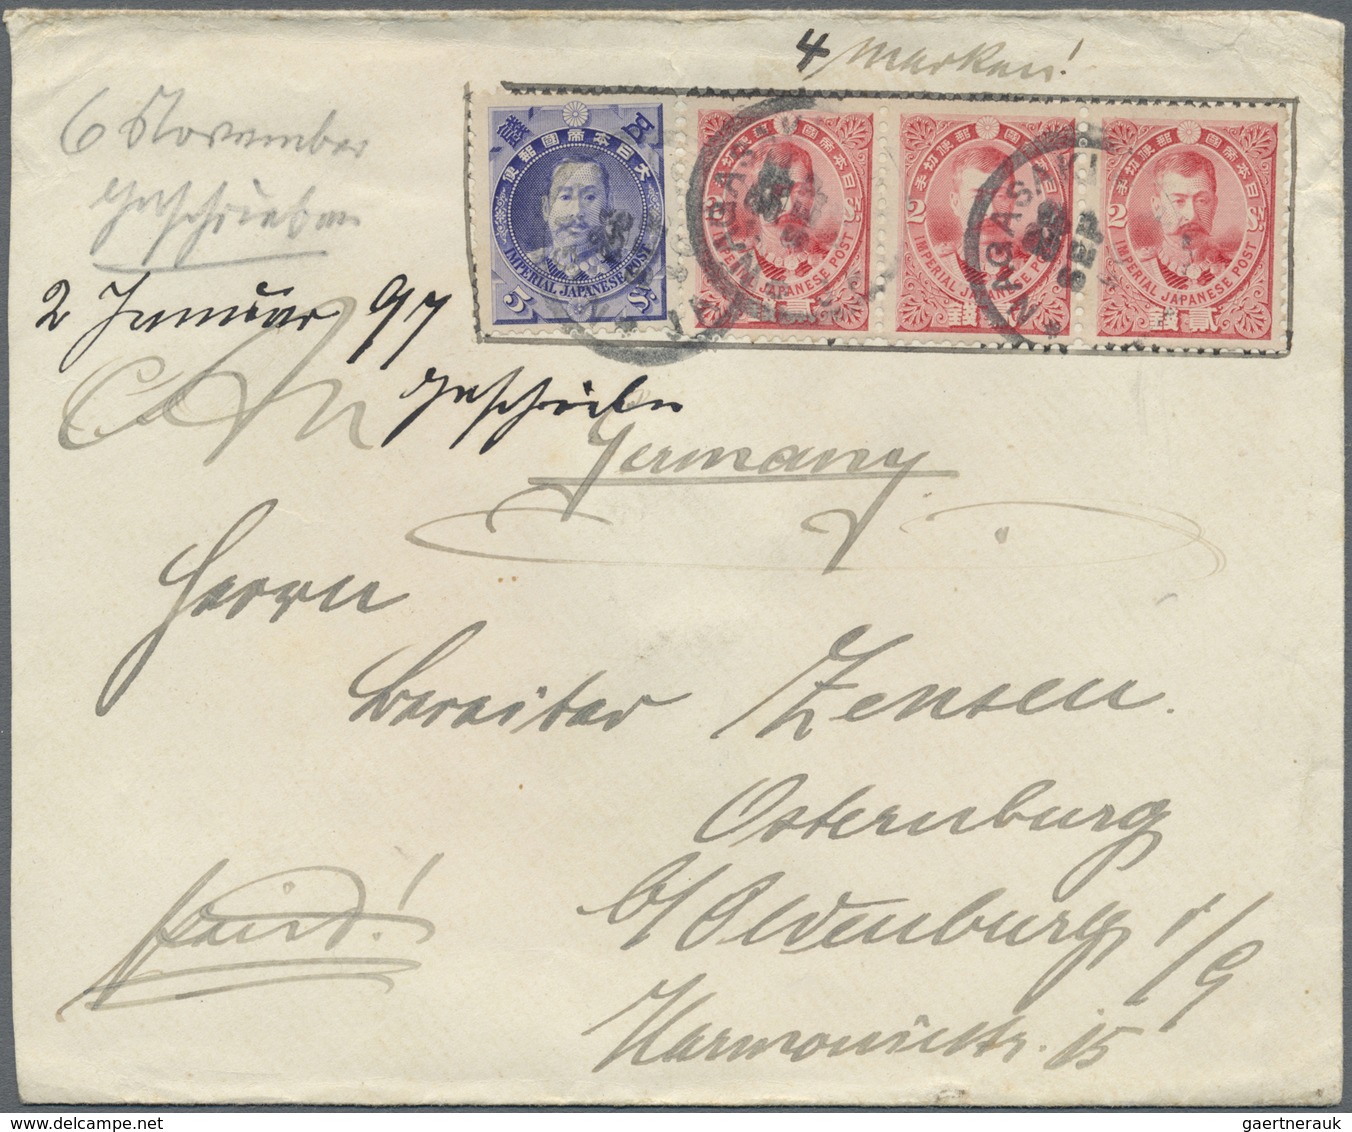 4 Marken!
6 November
geschrieben
2 Januar 97
geschrieben
大日本帝國郵便
IMPERIAL JAPANESE POST
5 Sⁿ
大日本帝國郵便切手
2 Sⁿ
IMPERIAL JAPANESE POST
貳銭
大日本帝國郵便切手
2 Sⁿ
IMPERIAL JAPANESE POST
貳銭
大日本帝國郵便切手
2 Sⁿ
IMPERIAL JAPANESE POST
貳銭
NAGASAKI
SEP
NAGASAKI
SEP
Germany
Herrn
Bereiter Zensen.
Osternburg
b/Oldenburg i/G
Harmoniestr. 15
paid!
gaertnerauk / delcampe.net